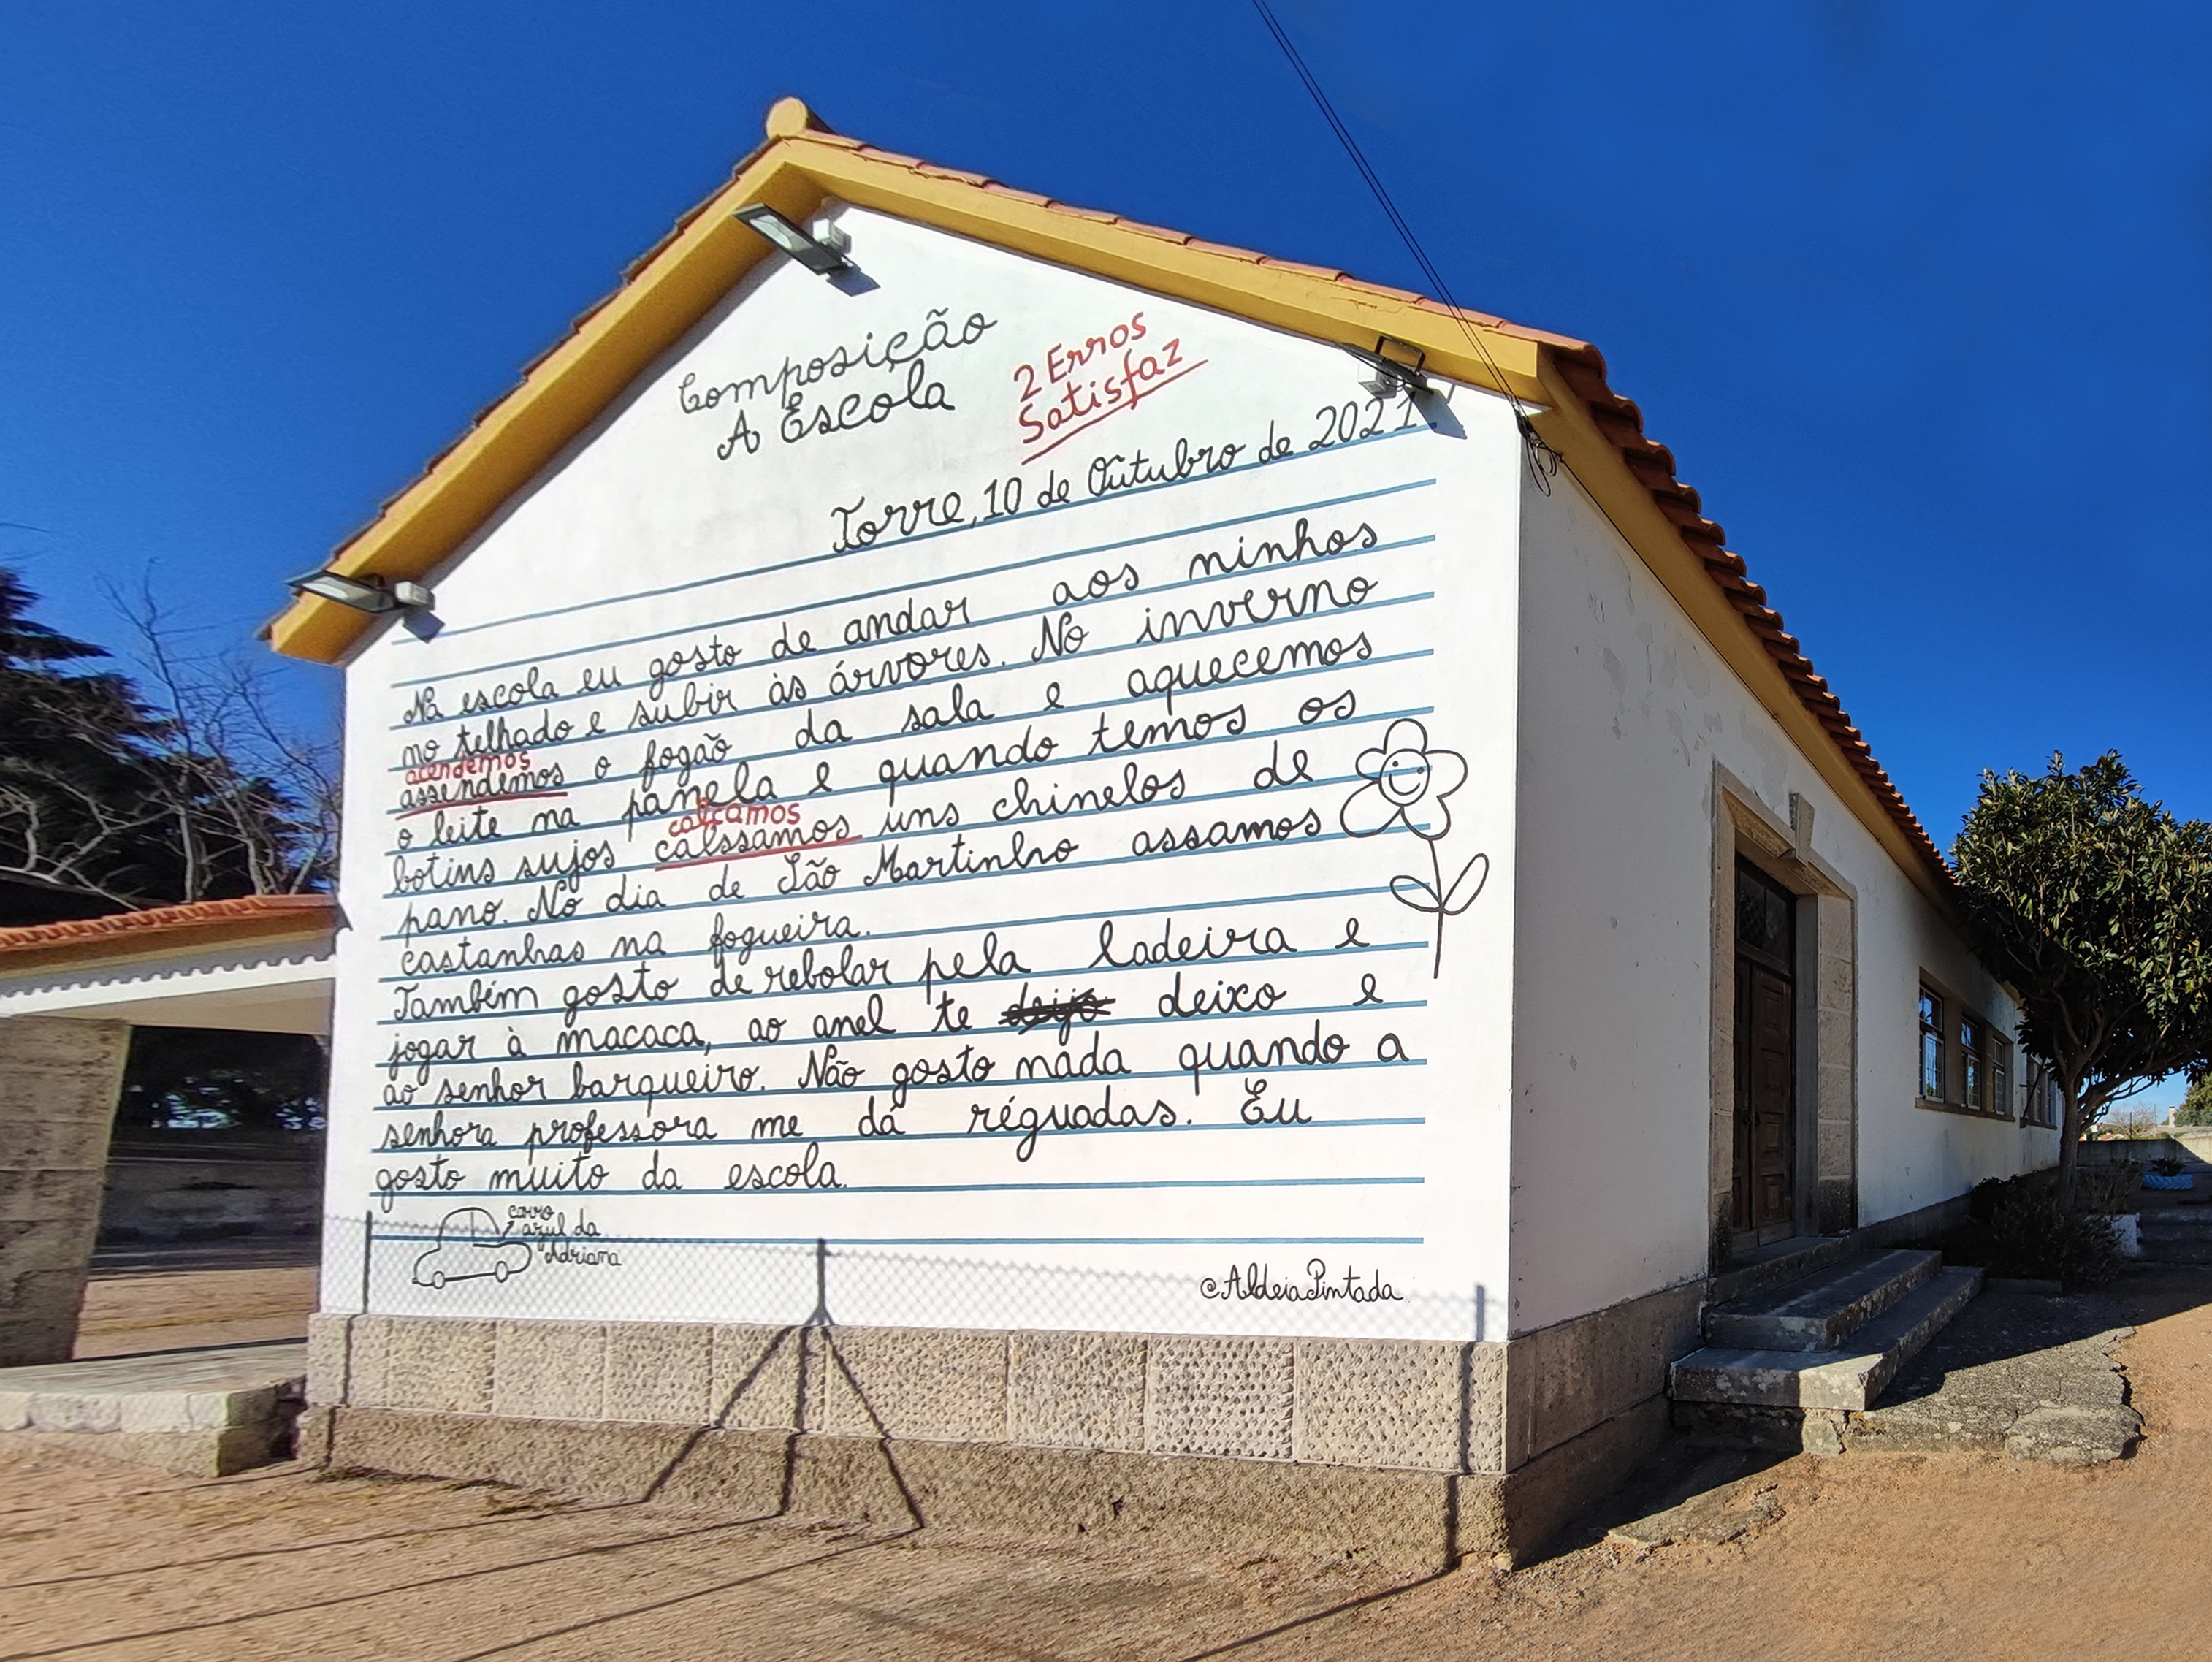 Composição
A Escola
2 Erros
Satisfaz
Torre, 10 de Outubro de 2021
Na escola eu gosto de andar aos ninhos
no telhado e subir às árvores. No inverno
acendemos
assendemos o fogão da sala e aquecemos
o leite na panela e quando temos os
calçamos
botins sujos calssamos uns chinelos de
pano. No dia de São Martinho assamos
castanhas na fogueira.
Também gosto de rebolar pela ladeira e
jogar à macaca, ao anel te deijo deixo e
ao senhor barqueiro. Não gosto nada quando a
senhora professora me dá réguadas. Eu
gosto muito da escola.
carro
azul da
Adriana
@AldeiaPintada